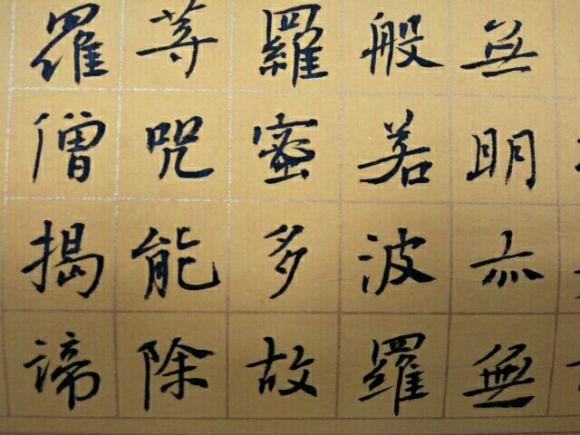 無明亦無
般若波羅
羅蜜多故
等呪能除
羅僧揭諦